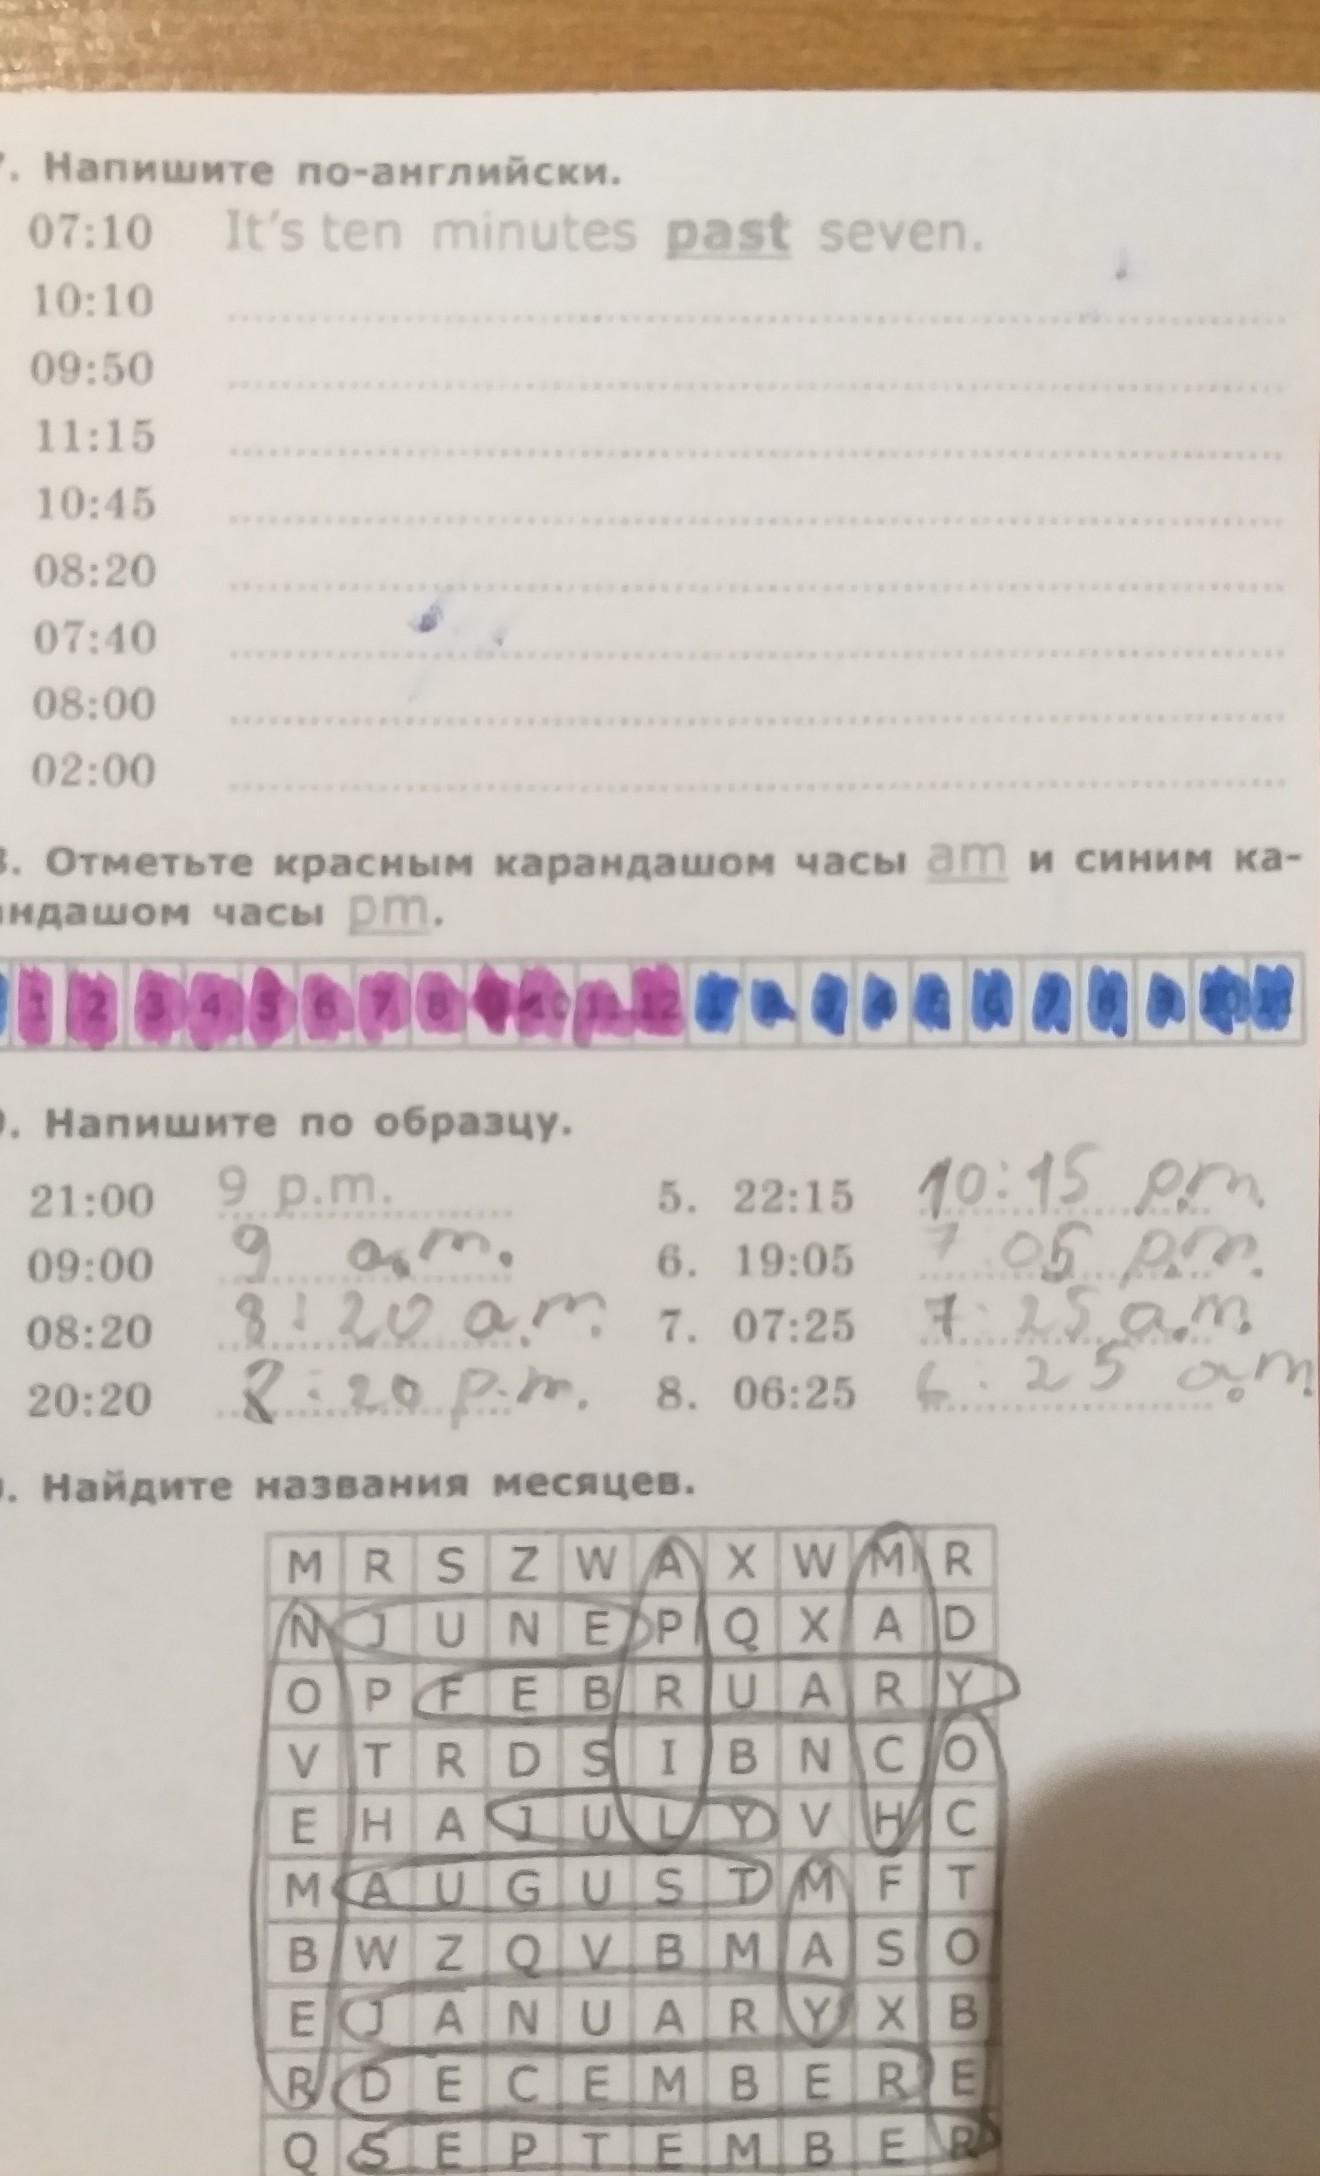 . Напишите по-английски.
07:10 It's ten minutes past seven.
10:10
09:50
11:15
10:45
08:20
07:40
08:00
02:00
. Отметьте красным карандашом часы am и синим ка-
ндашом часы pm.
1 2 3 4 5 6 7 8 9 10 11 12 1 2 3 4 5 6 7 8 9 10 11
. Напишите по образцу.
21:00 9 p.m. 5. 22:15 10:15 p.m.
09:00 9 a.m. 6. 19:05 7:05 p.m.
08:20 8:20 a.m. 7. 07:25 7:25 a.m.
20:20 8:20 p.m. 8. 06:25 6:25 a.m.
. Найдите названия месяцев.
M R S Z W A X W M R
N J U N E P Q X A D
O P F E B R U A R Y
V T R D S I B N C O
E H A J U L Y V H C
M A U G U S T M F T
B W Z Q V B M A S O
E J A N U A R Y X B
R D E C E M B E R E
Q S E P T E M B E R